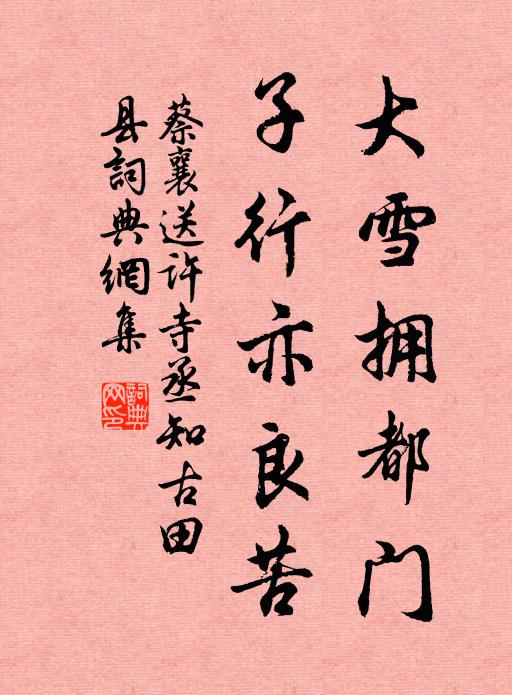 大雪拥都门
子行亦良苦
蔡襄送许寺丞知古田
县詞典網集
詞典网印